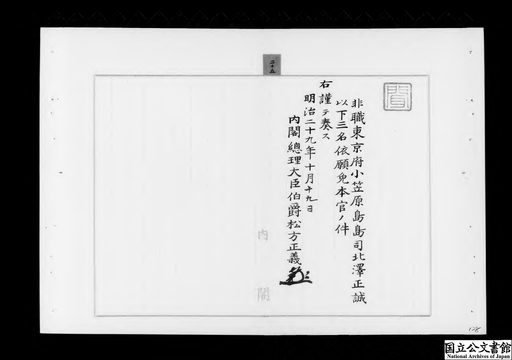 二十五
非職東京府小笠原島島司北澤正誠
以下三名依願免本官ノ件
右謹テ奏ス
明治二十九年十月十九日
内閣總理大臣伯爵松方正義
内閣
国立公文書館
National Archives of Japan